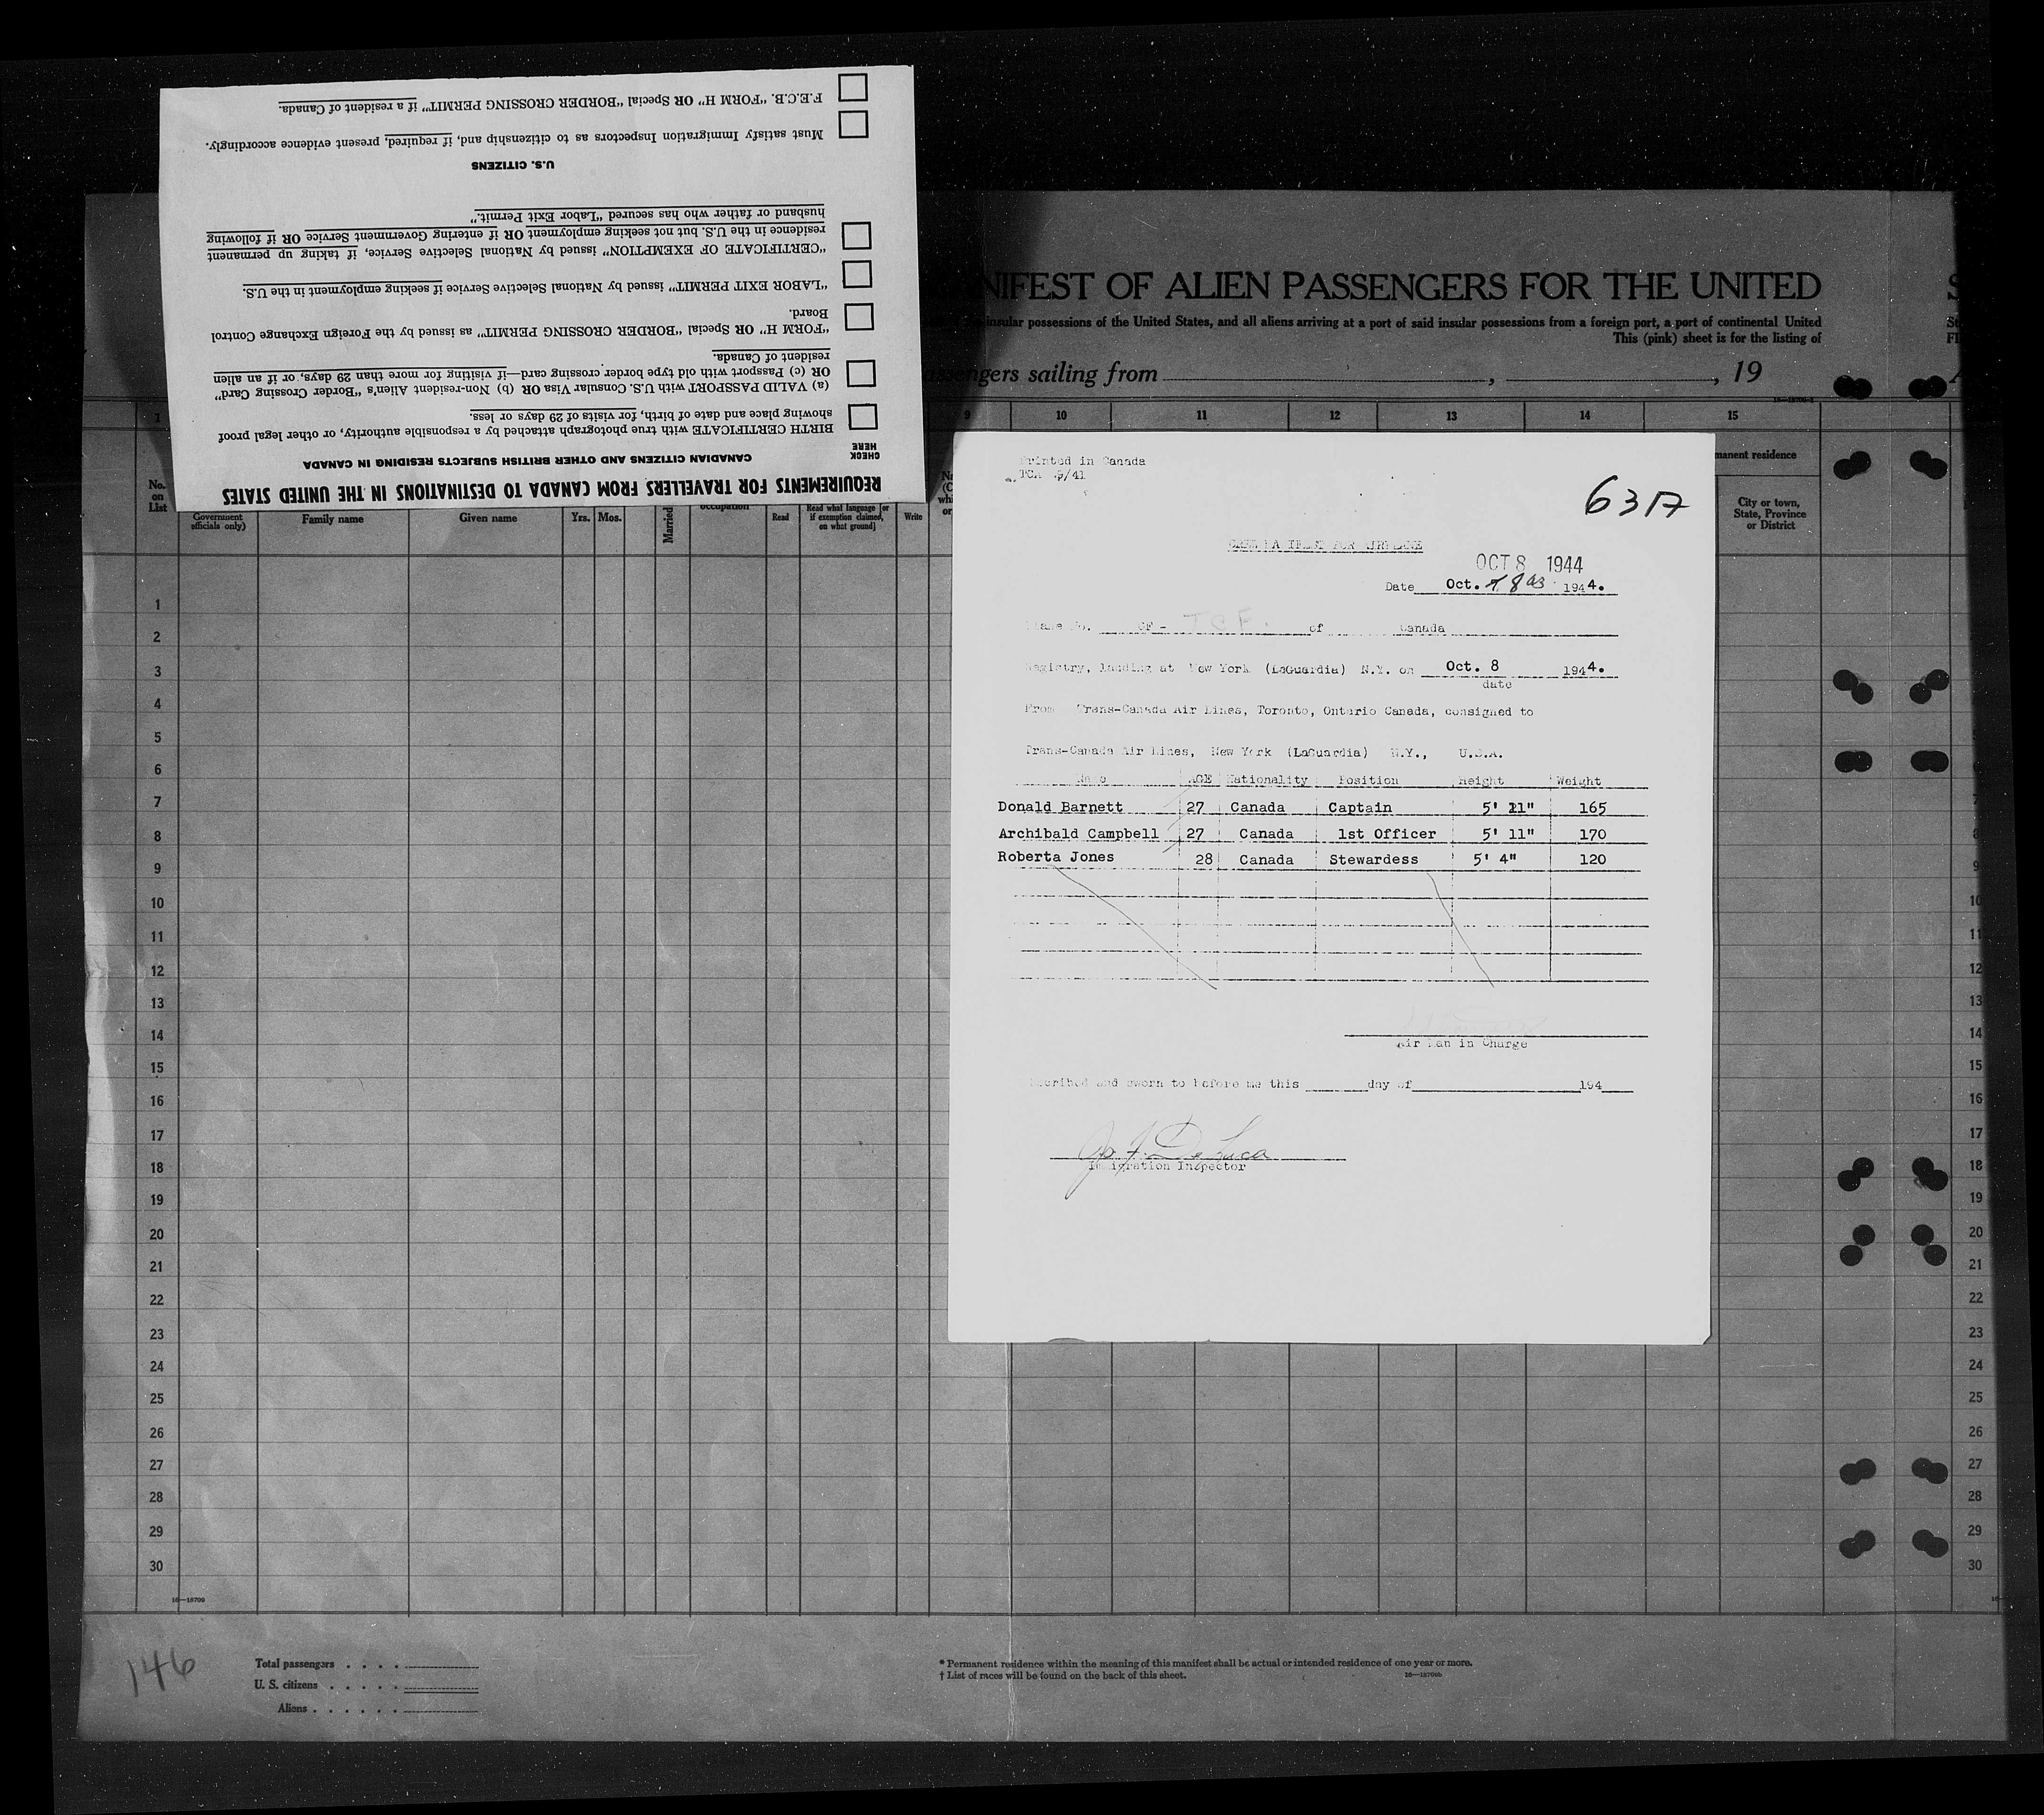 REQUIREMENTS FOR TRAVELLERS FROM CANADA TO DESTINATIONS IN THE UNITED STATES
CHECK
HERE
CANADIAN CITIZENS AND OTHER BRITISH SUBJECTS RESIDING IN CANADA
BIRTH CERTIFICATE with true photograph attached by a responsible authority, or other legal proof
showing place and date of birth, for visits of 29 days or less.
(a) VALID PASSPORT with U.S. Consular Visa OR (b) Non-resident Alien's "Border Crossing Card"
OR (c) Passport with old type border crossing card—if visiting for more than 29 days, or if an alien
resident of Canada.
"FORM H" OR Special "BORDER CROSSING PERMIT" as issued by the Foreign Exchange Control
Board.
"LABOR EXIT PERMIT" issued by National Selective Service if seeking employment in the U.S.
"CERTIFICATE OF EXEMPTION" issued by National Selective Service, if taking up permanent
residence in the U.S. but not seeking employment OR if entering Government Service OR if following
husband or father who has secured "Labor Exit Permit."
U.S. CITIZENS
Must satisfy Immigration Inspectors as to citizenship and, if required, present evidence accordingly.
F.E.C.B. "FORM H" OR Special "BORDER CROSSING PERMIT" if a resident of Canada.
NIFEST OF ALIEN PASSENGERS FOR THE UNITED
insular possessions of the United States, and all aliens arriving at a port of said insular possessions from a foreign port, a port of continental United
This (pink) sheet is for the listing of
sailing from , , 19
1 9 10 11 12 13 14 15
No.
on
List
Government
officials only)
Family name
Given name
Yrs. Mos.
Married
occupation
Read
Read what language [or
if exemption claimed,
on what ground]
Write
manent residence
City or town,
State, Province
or District
Printed in Canada
TCA 5/41
63A
OCT 8 1944
Date Oct. 8 1944.
CF- TCF. of Canada
Registry, landing at New York (LaGuardia) N.Y. on Oct. 8 1944.
date
From Trans-Canada Air Lines, Toronto, Ontario Canada, consigned to
Trans-Canada Air Lines, New York (LaGuardia) N.Y., U.S.A.
Name AGE Nationality Position Height Weight
Donald Barnett 27 Canada Captain 5' 11" 165
Archibald Campbell 27 Canada 1st Officer 5' 11" 170
Roberta Jones 28 Canada Stewardess 5' 4" 120
Air Man in Charge
and sworn to before me this day of 194
Jo F. De Luca
Immigration Inspector
1
2
3
4
5
6
7
8
9
10
11
12
13
14
15
16
17
18
19
20
21
22
23
24
25
26
27
28
29
30
16—18709
146
Total passengers
U. S. citizens
Aliens
* Permanent residence within the meaning of this manifest shall be actual or intended residence of one year or more.
† List of races will be found on the back of this sheet.